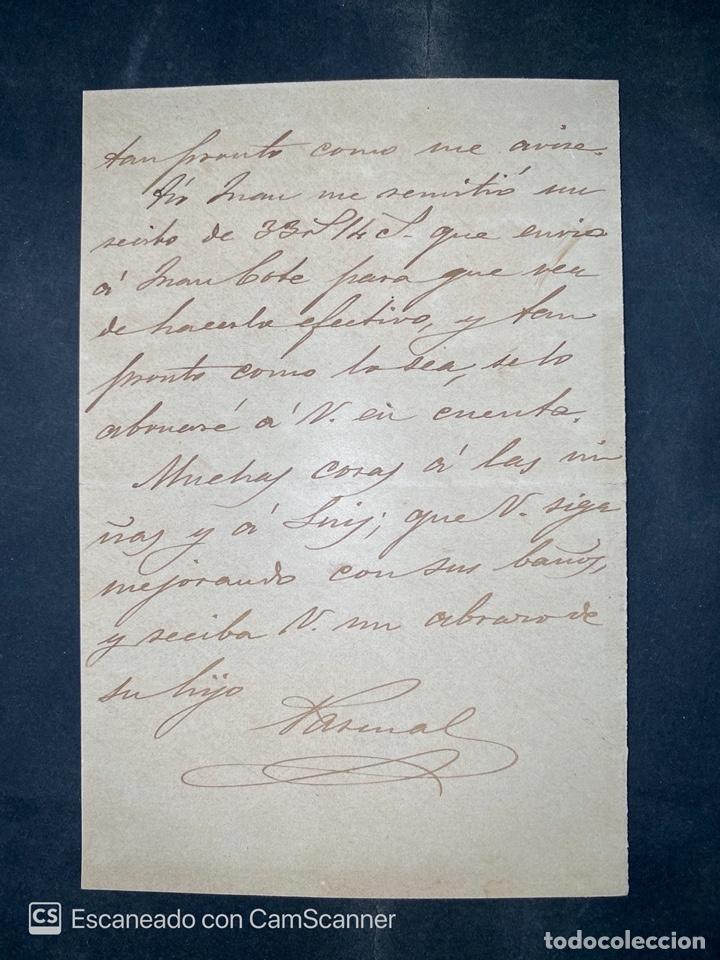 tan pronto como me avise.
Tío Juan me remitió un
recibo de 33 14 que envio
á Juan Cote para que vea
de hacerlo efectivo, y tan
pronto como lo sea, se lo
abonaré á V. en cuenta.
Muchas cosas á las ni
ñas y á Luis; que V. siga
mejorando con sus baños,
y reciba V. un abrazo de
su hijo
Pascual
CS Escaneado con CamScanner
todocoleccion